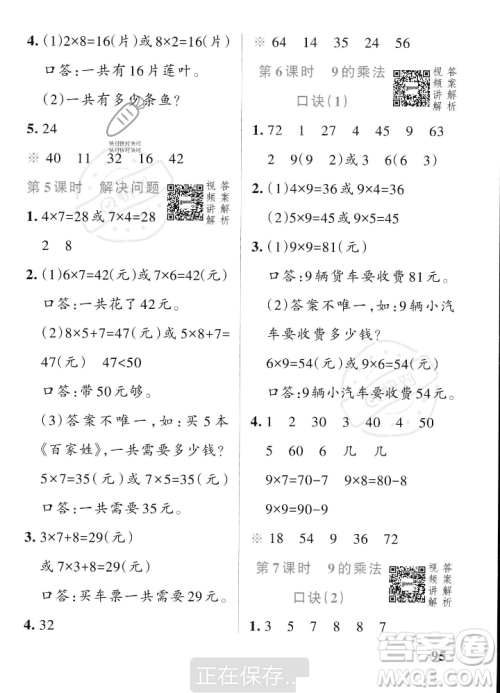 4. (1)2×8=16(片)或8×2=16(片)
口答:一共有16片莲叶。
(2)一共有多少条鱼?
5. 24
※ 40 11 32 16 42
第5课时 解决问题
视频讲解
答案解析
1. 4×7=28或7×4=28
2 8
2. (1)6×7=42(元)或7×6=42(元)
口答:一共花了42元。
(2)8×5+7=47(元)或7+8×5=
47(元) 47<50
口答:带50元够。
(3)答案不唯一,如:买5本
《百家姓》,一共需要多少钱?
5×7=35(元)或7×5=35(元)
口答:一共需要35元。
3. 3×7+8=29(元)
或7×3+8=29(元)
口答:买车票一共需要29元。
4. 32
※ 64 14 35 24 56
第6课时 9的乘法
口诀(1)
视频讲解
答案解析
1. 72 1 27 9 9 63
2 9(9) 2(2) 18
2. (1)4×9=36或9×4=36
(2)5×9=45或9×5=45
3. (1)9×9=81(元)
口答:9辆货车要收费81元。
(2)答案不唯一,如:9辆小汽
车要收费多少钱?
6×9=54(元)或9×6=54(元)
口答:9辆小汽车要收费54元。
4. 1 2 30 3 40 4 50
5 60 6 几 几
9×7=70-7
9×8=80-8
※ 18 54 9 36 72
第7课时 9的乘法
口诀(2)
视频讲解
答案解析
1. 3 5 7 8 8 7
95
快对快对快对
快对快对快对
正在保存..
答案圈